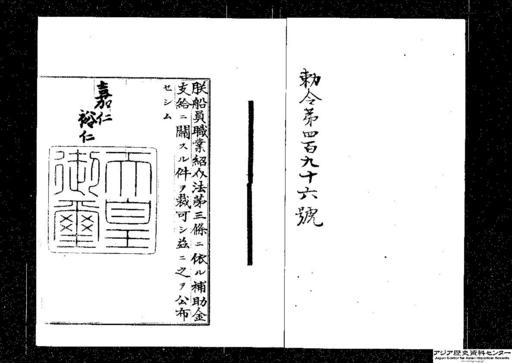 勅令第四百九十六號
朕船員職業紹介法第三條ニ依ル補助金
支給ニ關スル件ヲ裁可シ茲ニ之ヲ公布
セシム
嘉仁
裕仁
天皇
御璽
アジア歴史資料センター
Japan Center for Asian Historical Records